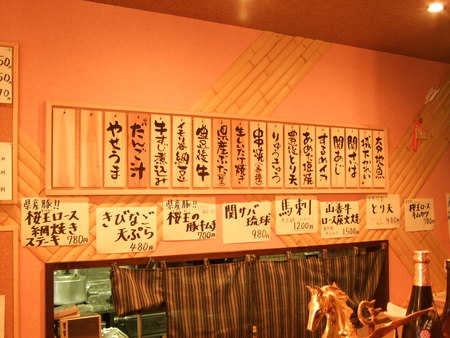 大分地魚
城下かれい
関さば
関あじ
するめイカ
あめた塩焼
豊後とり天
りゅうきゅう
串焼(各種)
生しいたけ焼き
県産ぶた
豊後牛
イモリ谷納豆
牛すじ煮込み
だんご汁
やせうま
県産豚!!
桜王ロース
網焼き
ステーキ 780円
きびなご
天ぷら
480円
県産豚!!
桜王の
豚キムチ
700円
関サバ
琉球
980円
馬刺
1200円
山香牛
ロース炭火焼
1500円
とり天
480円
桜王ロース
キムカツ